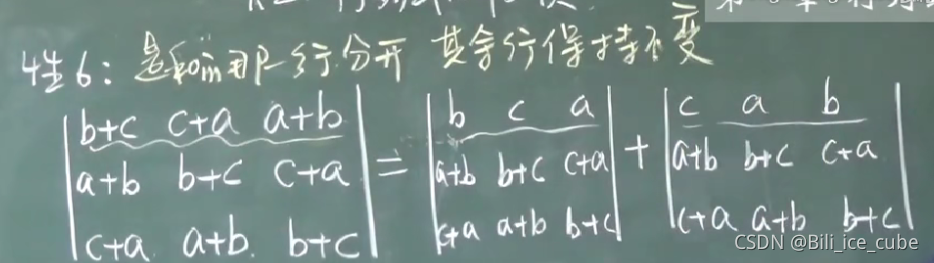 性6: 是和的那一行分开 其余行保持不变
|b+c c+a a+b| = |b c a| + |c a b|
|a+b b+c c+a| |a+b b+c c+a| |a+b b+c c+a|
|c+a a+b b+c| |c+a a+b b+c| |c+a a+b b+c|
CSDN @Bili_ice_cube